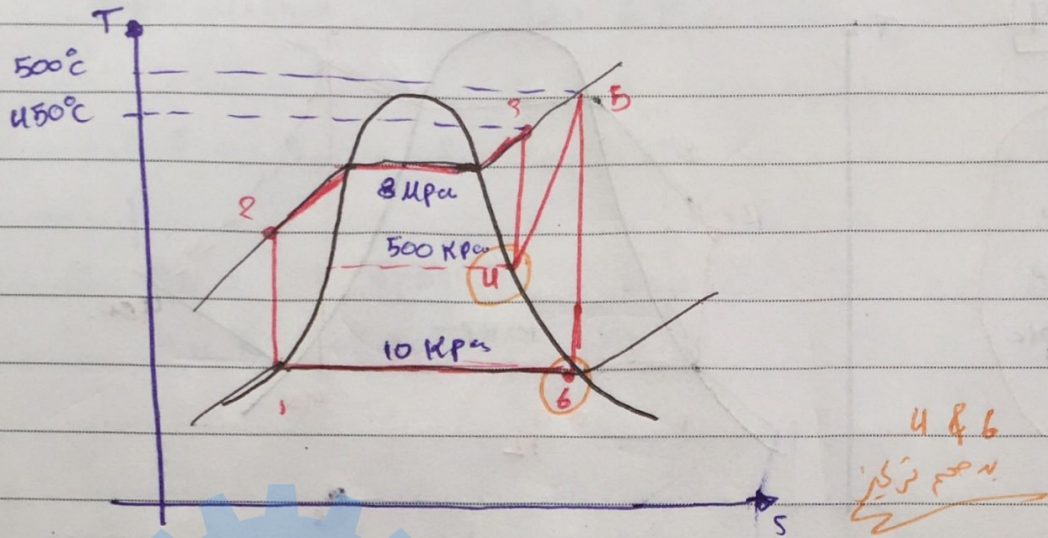 T
500°C
450°C
3
5
2
8 Mpa
500 Kpa
4
10 Kpa
1
6
4 & 6
S